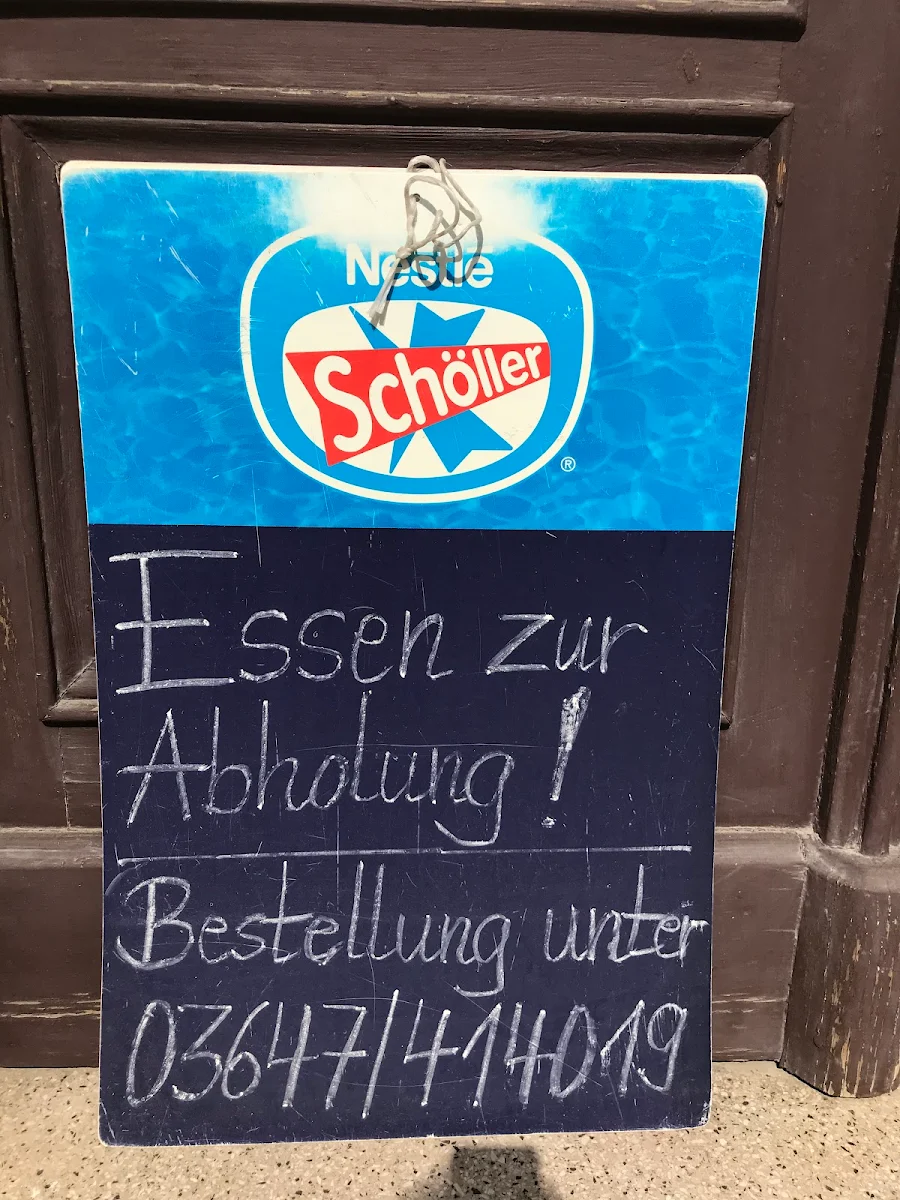 Nestlé
Schöller
®
Essen zur
Abholung!
Bestellung unter
03647/414019